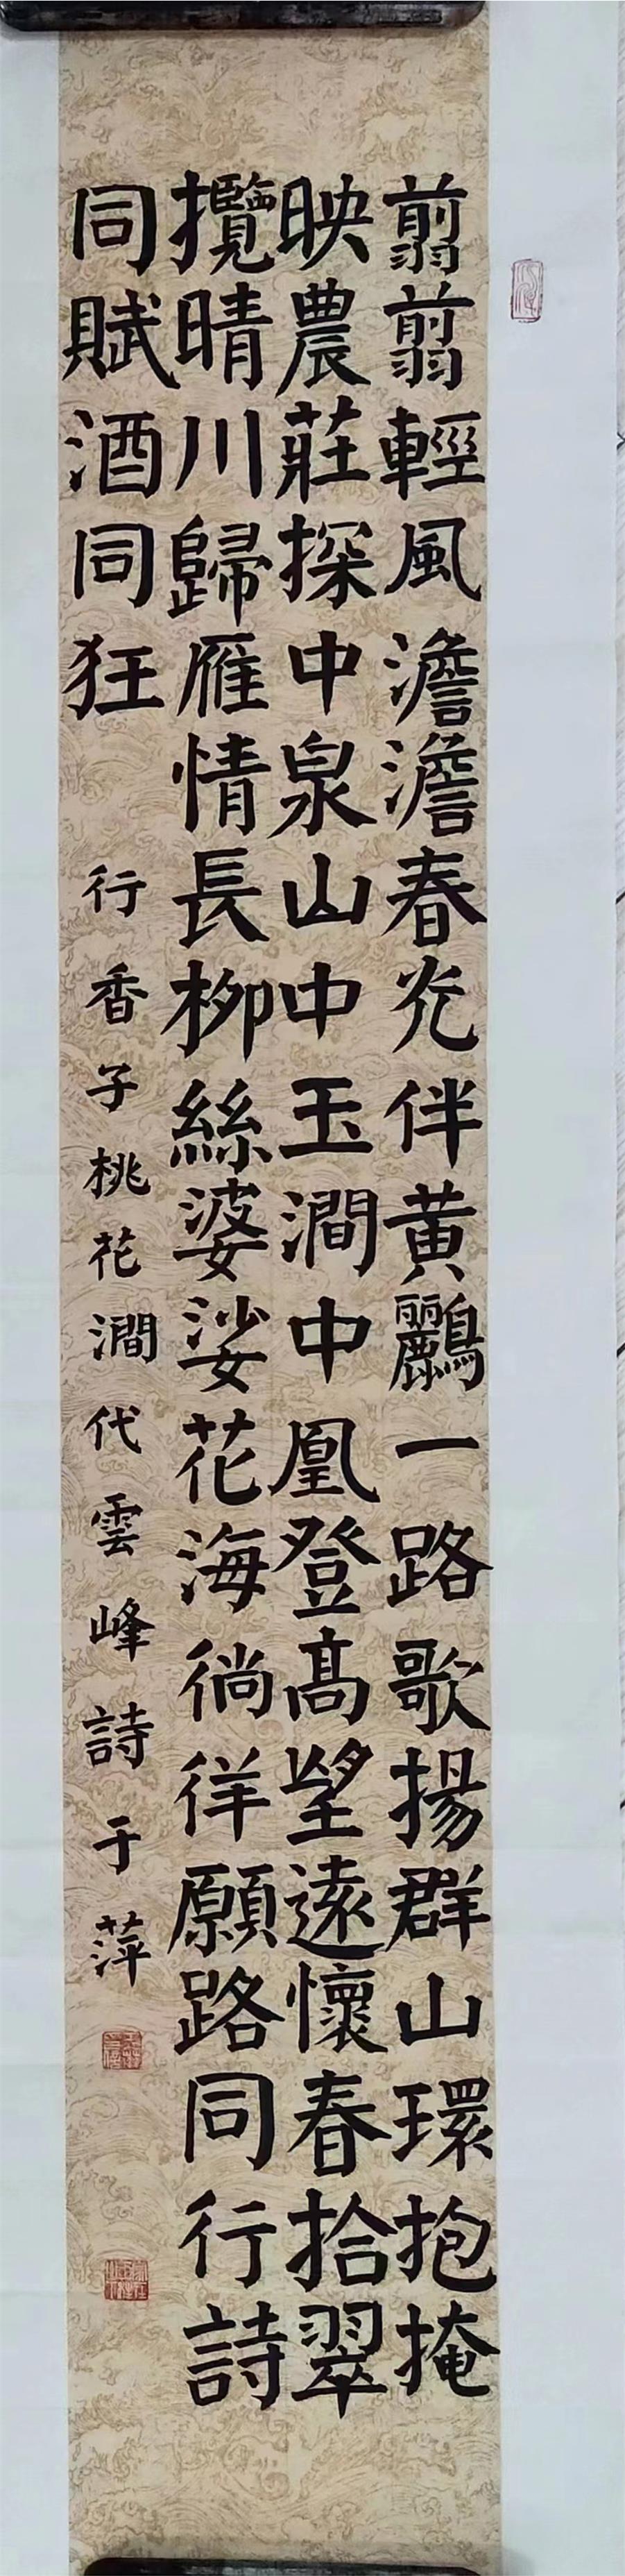 翦翦輕風澹澹春光伴黃鸝一路歌揚群山環抱掩
映農莊探中泉山中玉澗中凰登高望遠懷春拾翠
攬晴川歸雁情長柳絲婆娑花海徜徉願路同行詩
同賦酒同狂
行香子桃花澗代雲峰詩于萍